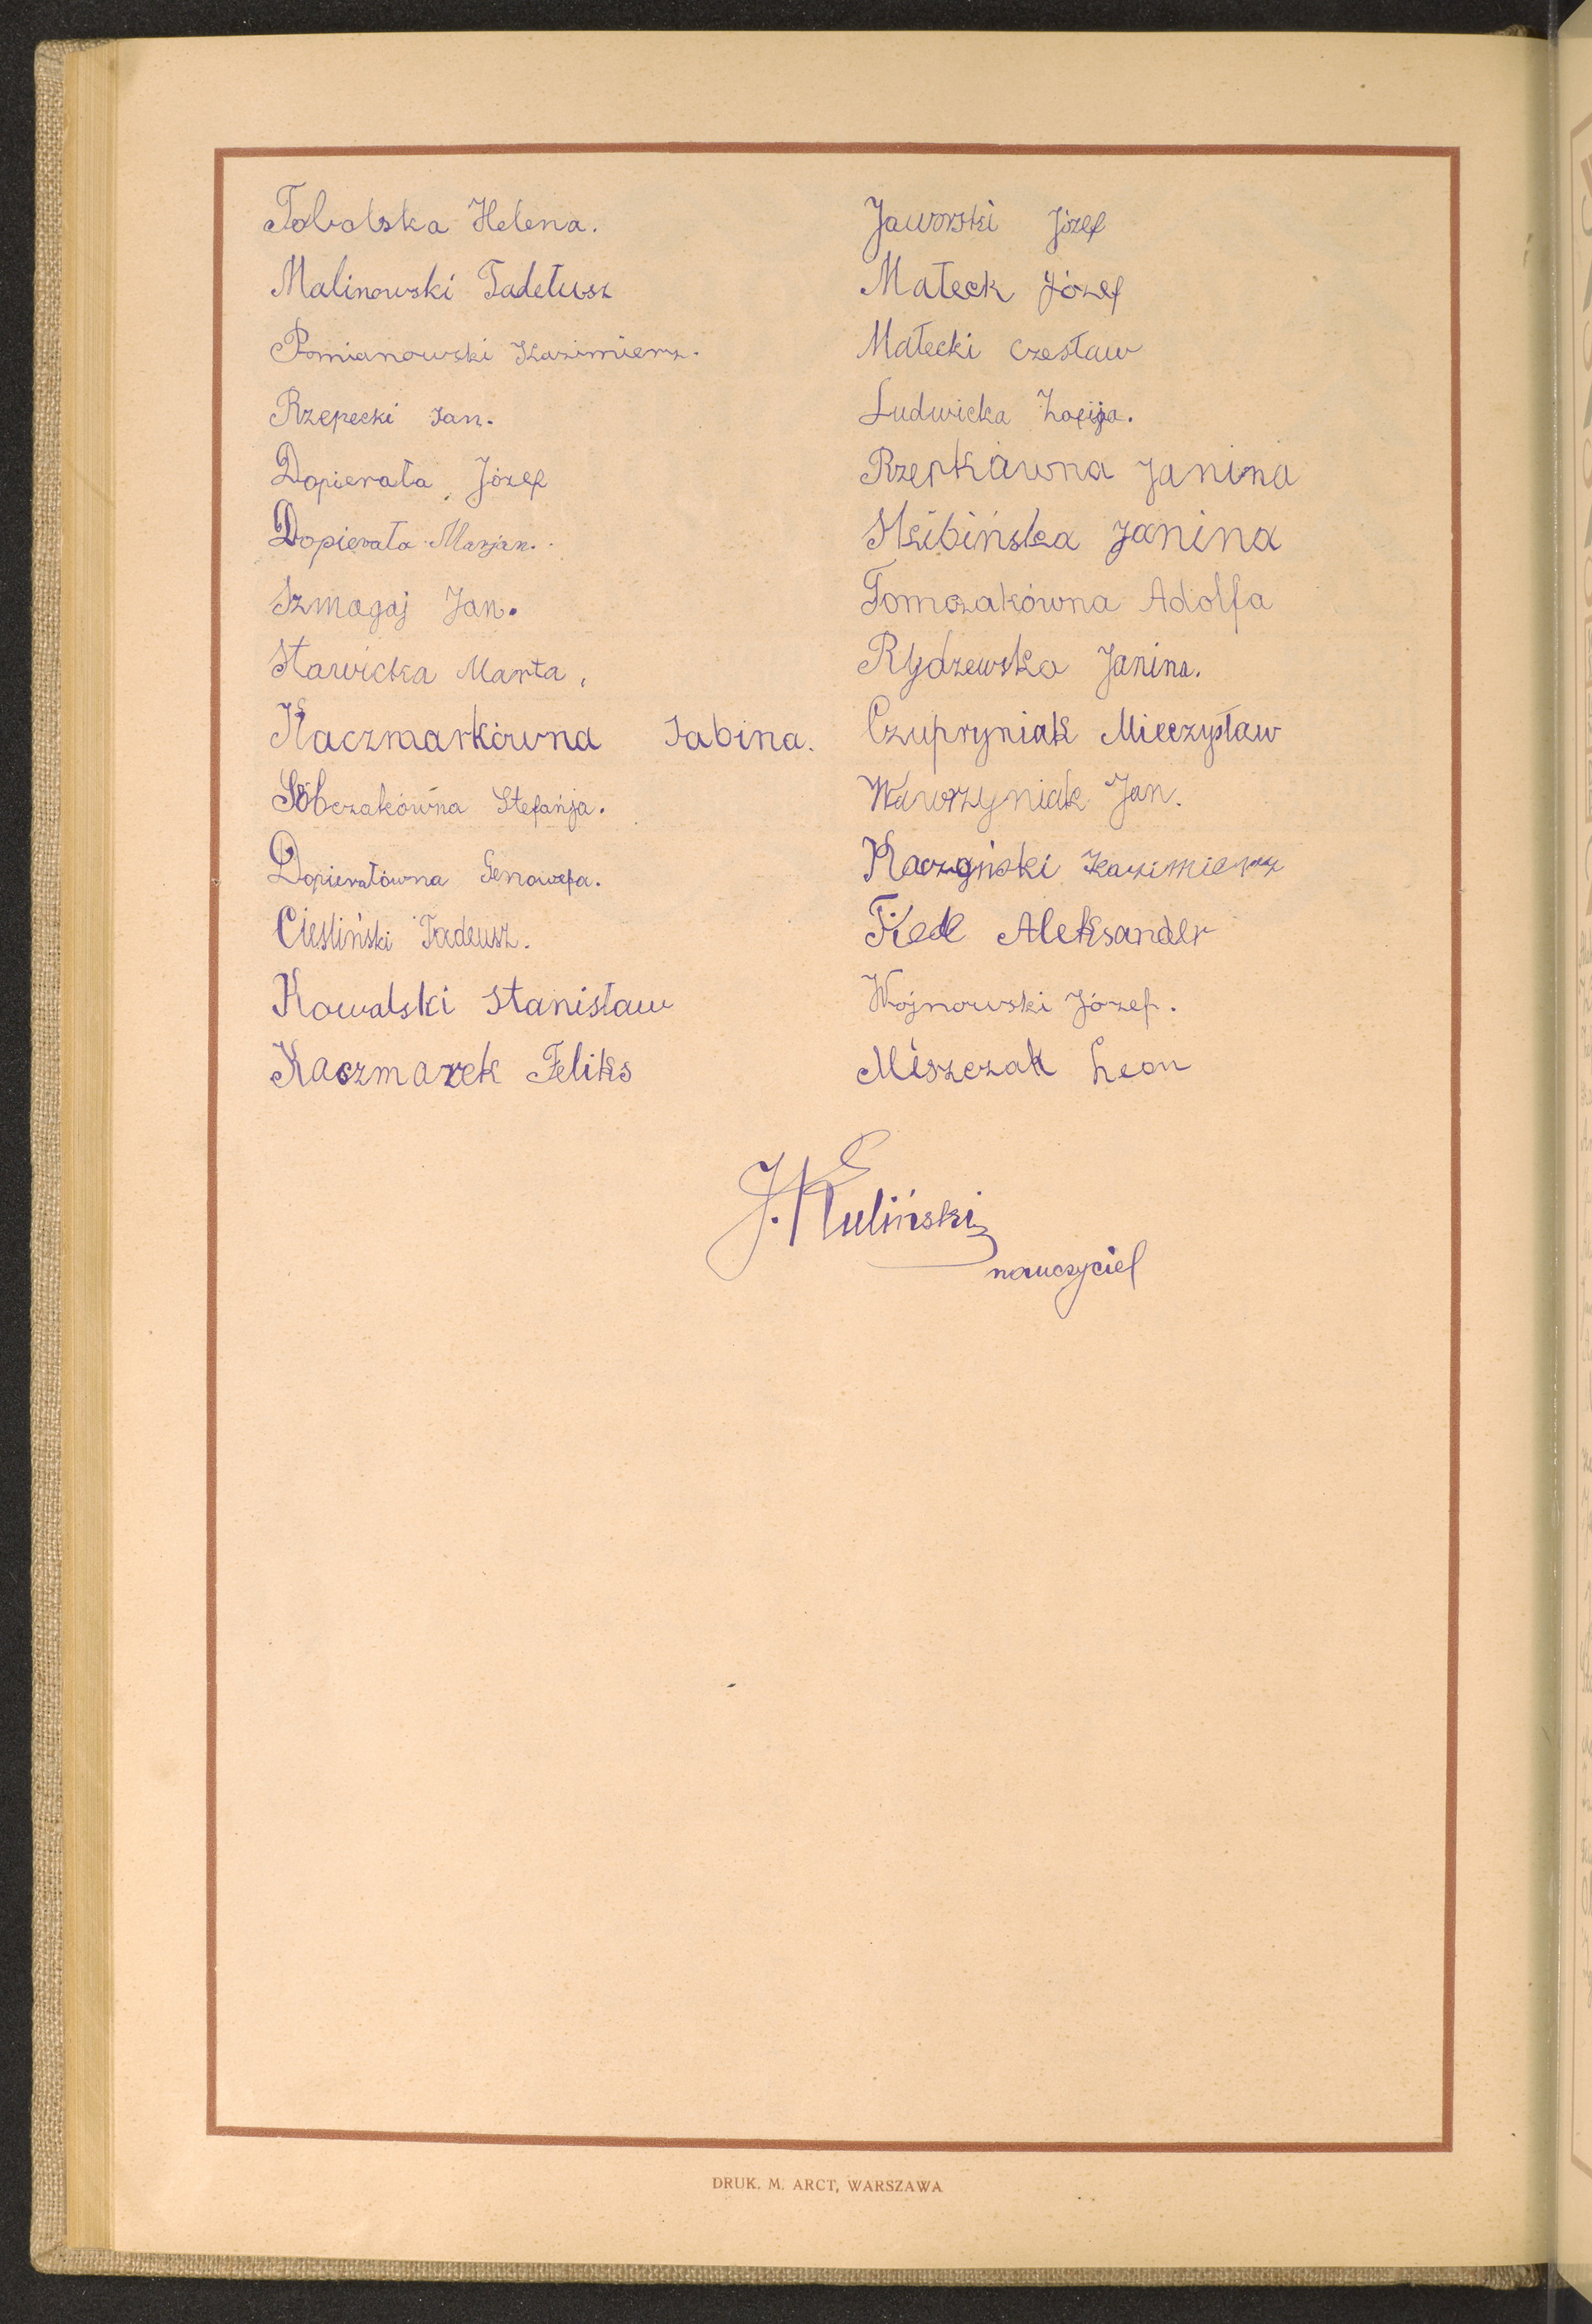 Tobolska Helena.
Malinowski Tadełusz
Pomianowski Kazimierz.
Rzepecki Jan.
Dopierała Józef
Dopierała Marjan.
Szmagaj Jan.
Stawicka Marta,
Kaczmarkówna Sabina.
Sobczakówna Stefańja.
Dopierałówna Genowefa.
Cieśliński Tadeusz.
Kowalski Stanisław
Kaczmarek Feliks
Jaworski Józef
Małeck Józef
Małecki Czesław
Ludwicka Zofija.
Rzepkówna Janina
Skibińska Janina
Tomczakówna Adolfa
Rydzewska Janina.
Czupryniak Mieczysław
Wawrzyniak Jan.
Kaczyński Kazimierz
Aleksander
Wojnowski Józef.
Miszczak Leon
J. Kuliński
nauczyciel
DRUK. M. ARCT, WARSZAWA